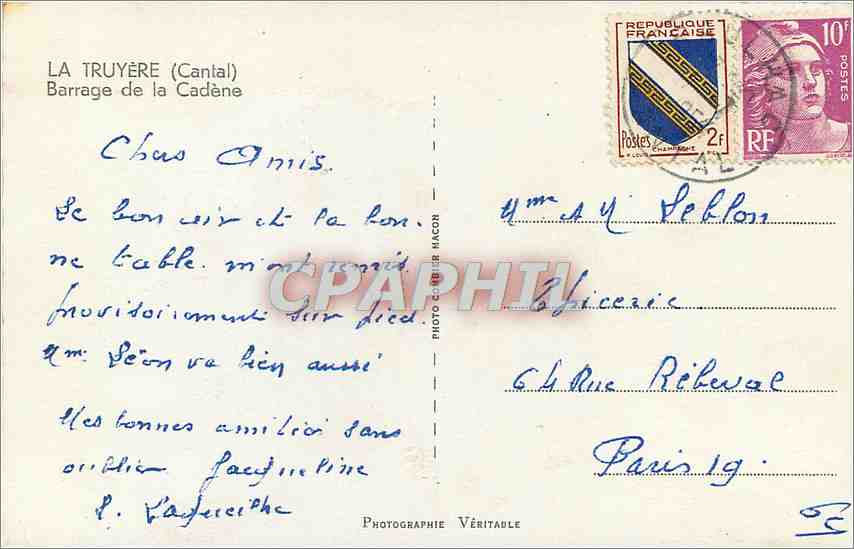 LA TRUYÈRE (Cantal)
Barrage de la Cadène
Chers Amis.
Le bon air et la bon-
ne table m'ont remis
provisoirement sur pied.
Mme Léon va bien aussi
Mes bonnes amitiés sans
oublier Jacqueline
PHOTO COMBIER MACON
PHOTOGRAPHIE VÉRITABLE
CPAPHIL
REPUBLIQUE
FRANÇAISE
Postes 2F
CHAMPAGNE
10F
POSTES
RF
Mme & M Leblon
Epicerie
64 Rue Rébeval
Paris 19.